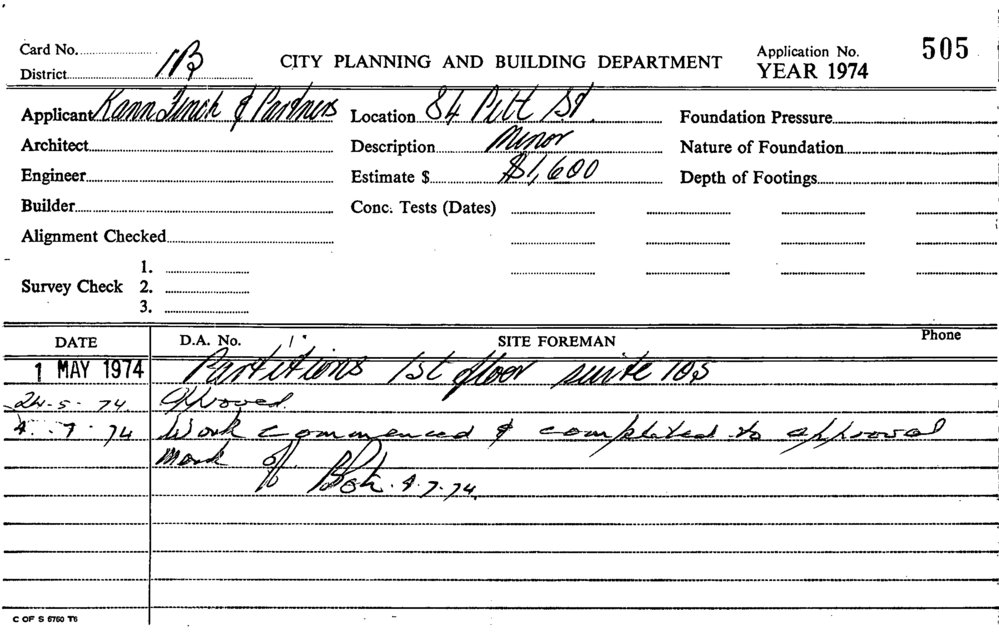 Card No.
District 1B
CITY PLANNING AND BUILDING DEPARTMENT
Application No. 505
YEAR 1974
Applicant Kann Finch & Partners
Location 84 Pitt St.
Foundation Pressure
Architect
Description Minor
Nature of Foundation
Engineer
Estimate $ $1,600
Depth of Footings
Builder
Conc. Tests (Dates)
Alignment Checked
Survey Check 1.
2.
3.
DATE D.A. No. SITE FOREMAN Phone
1 MAY 1974 Partitions 1st floor suite 105
24-5-74 Approved
4-7-74 Work commenced & completed to approval
Mark off 4.7.74.
C OF S 5760 T6